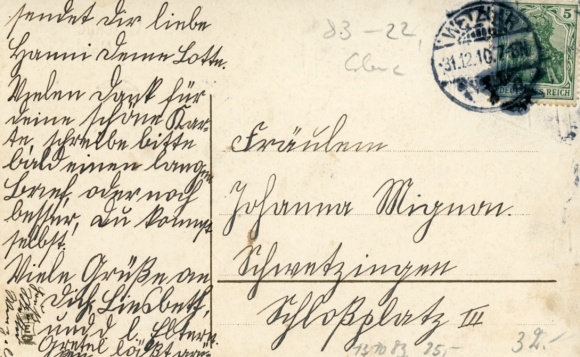 sendet Dir liebe
Hanni Deine Lotte.
Vielen Dank für
deine schöne Kar-
te, schreibe bitte
bald einen langen
Brief, oder noch
besser, Du kommst
selbst.
Viele Grüße an
Dich, Liesbeth,
und d. l. Eltern
Gretel läßt
Fräulein
Johanna Mignon.
Schwetzingen
Schloßplatz III
83-22,
31.12.10. 7-8N
5
DEUTSCHES REICH
131083
25,-
32.-